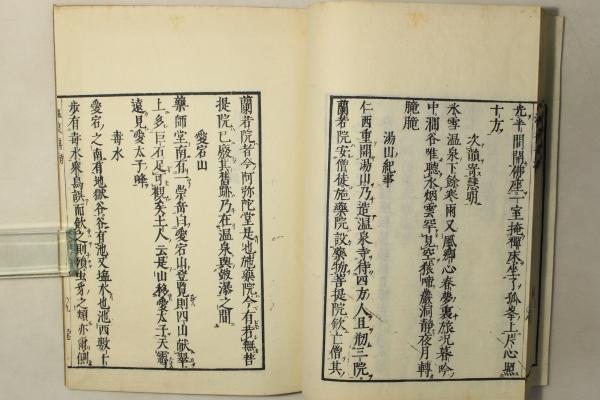 光半間開佛座一室掩禪床坐了孤峯上片心照
十方
次韻寄慧明
氷雪温泉下餘寒雨又風鄉心春夢裏旅况暮吟
中澗谷唯聽水烟雲罕見空猿啼巖洞静夜月轉
朧朧
湯山紀事
仁西重開湯山乃造温泉寺待四方人且剏三院
蘭若院安僧徒施藥院設藥物菩提院飲亡僧其
蘭若院者今阿弥陀堂是也施藥院今有若無菩
提院已廢其舊跡乃在温泉與皷瀑之間
愛宕山
藥師堂南有一崇音曰愛宕山登覧則四山献翠
上多巨石足可觀矣土人云是山移愛太子天靈
遠見愛太子峰
毒水
愛宕之南有地獄谷谷有池又塩水也池西数十
歩有毒水衆鳥誤而飲之則 虫牙之類亦甭側